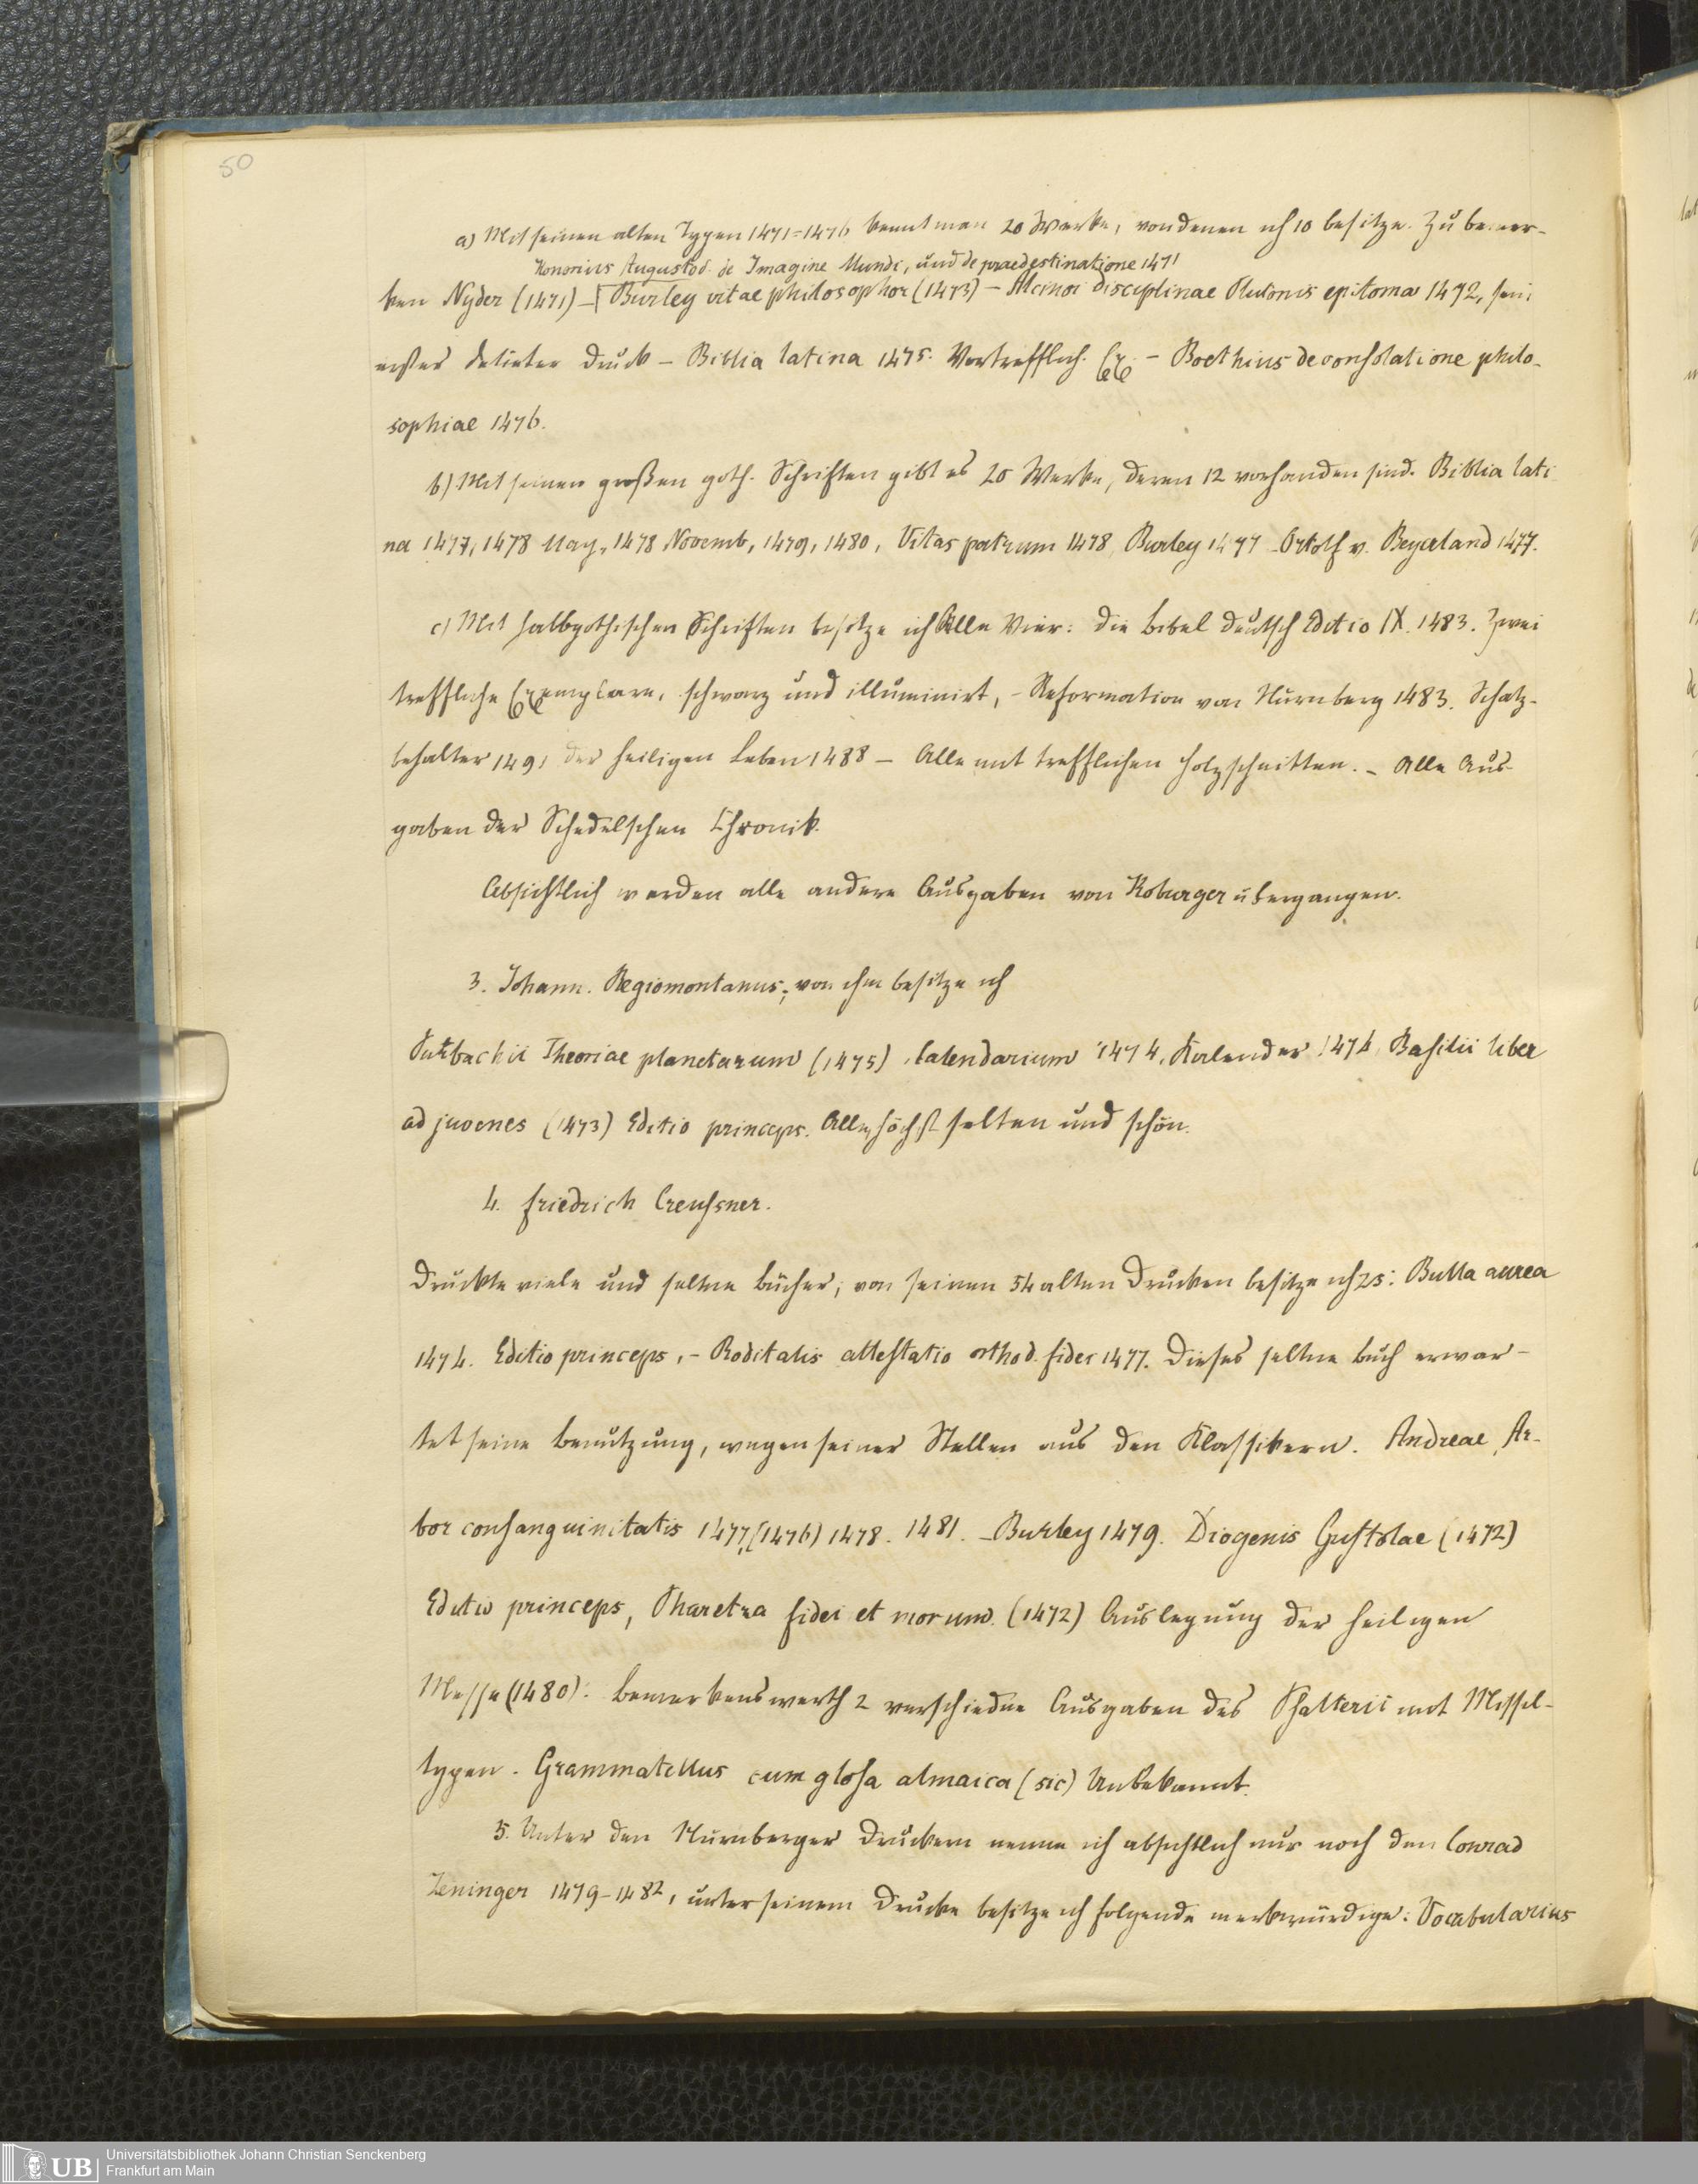 50
a) Mit seinen alten Typen 1471=1476 kennt man 20 Werke, von denen ich 10 besitze. Zu bemer-
Honorius Augustod. de Imagine Mundi, und de praedestinatione 1471
ken Nyder (1471) – Burley vitae philosophor (1473) – Alcinoi disciplinae Platonis epitoma 1472, sein
erster datirter Druck – Biblia latina 1475. Vortrefflich. Ex. – Boethius de consolatione philo-
sophiae 1476.
b) Mit seinen großen goth. Schriften gibt es 20 Werke, deren 12 vorhanden sind. Biblia lati
na 1477, 1478 May, 1478 Novemb, 1479, 1480, Vitas patrum 1478, Burley 1477 – Ortolf v. Beyerland 1477.
c) Mit halbgothischen Schriften besitze ich Alle Vier: die Bibel deutsch Editio IX. 1483. Zwei
treffliche Exemplare, schwarz und illuminirt, – Reformation von Nürnberg 1483. Schatz-
behalter 1491 der Heiligen Leben 1488 – Alle mit trefflichen Holzschnitten. – Alle Aus-
gaben der Schedelschen Chronik.
Absichtlich werden alle andere Ausgaben von Koburger übergangen.
3. Johann. Regiomontanus; von ihm besitze ich
Purbachii Theoriae planetarum (1475), Calendarium 1474, Kalender 1474, Basilii liber
ad juvenes (1473) Editio princeps. Alle höchst selten und schön.
4. Friedrich Creusner.
Druckte viele und seltne Bücher; von seinen 54 alten Drucken besitze ich 25: Bulla aurea
1474. Editio princeps, – Roditalis attestatio orthod. fidei 1477. Dieses seltne Buch erwar-
tet seine Benutzung, wegen seiner Stellen aus den Klassikern. Andreae, Ar-
bor consanguinitatis 1477, (1476) 1478. 1481. – Burley 1479. Diogenis Epistolae (1472)
Editio princeps, Pharetra fidei et morum. (1472) Auslegung der heiligen
Messe (1480). Bemerkenswerth 2 verschiedne Ausgaben des Psalterii mit Missel-
typen. Grammatellus cum glosa almaica (sic) Unbekannt.
5. Unter den Nürnberger Druckern nenne ich absichtlich nur noch den Conrad
Zeninger 1479–1482, unter seinem Drucke besitze ich folgende merkwürdige: Vocabularius
UB
Universitätsbibliothek Johann Christian Senckenberg
Frankfurt am Main